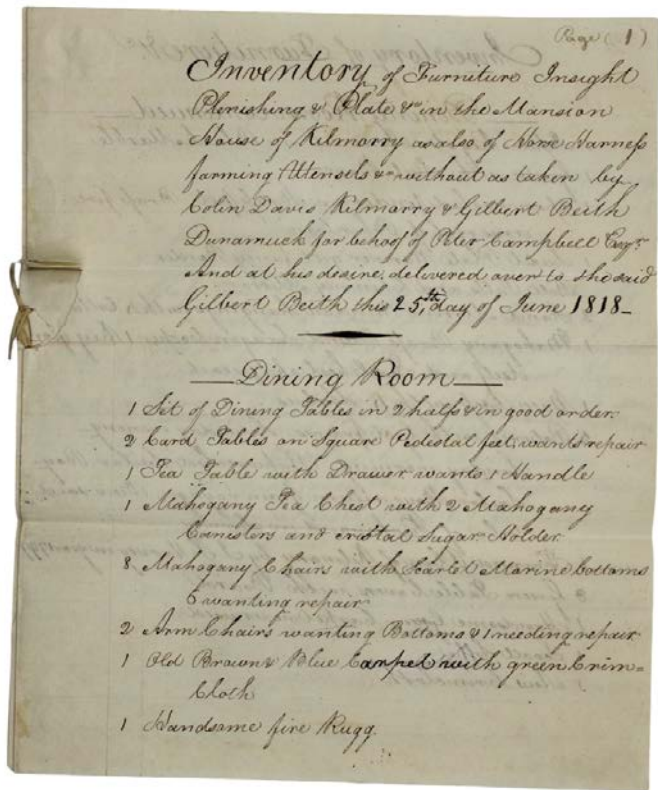 Page (1)
Inventory of Furniture Insight
Plenishing & Plate &c in the Mansion
House of Kilmorry as also of Horse Harness
farming Uttensels &c without as taken by
Colin Davis Kilmorry & Gilbert Beith
Dunamuck for behoof of Peter Campbell Esqr.
And at his desire, delivered over to the said
Gilbert Beith this 25th, day of June 1818-
Dining Room
1 Sit of Dining Tables in 2 halfs & in good order.
2 Card Tables on Square Pedestal feet, wants repair
1 Tea Table with Drawer wants 1 Handle
1 Mahogany Tea Chest with 2 Mahogany
Canisters and cristal Sugar Holder.
8 Mahogany Chairs with Scarlet Marine bottoms
wanting repair
2 Arm Chairs wanting Bottoms & 1 needing repair
1 Old Brown & Blue Carpet with green Crim=
Cloth
1 Handsome fire Rugg.